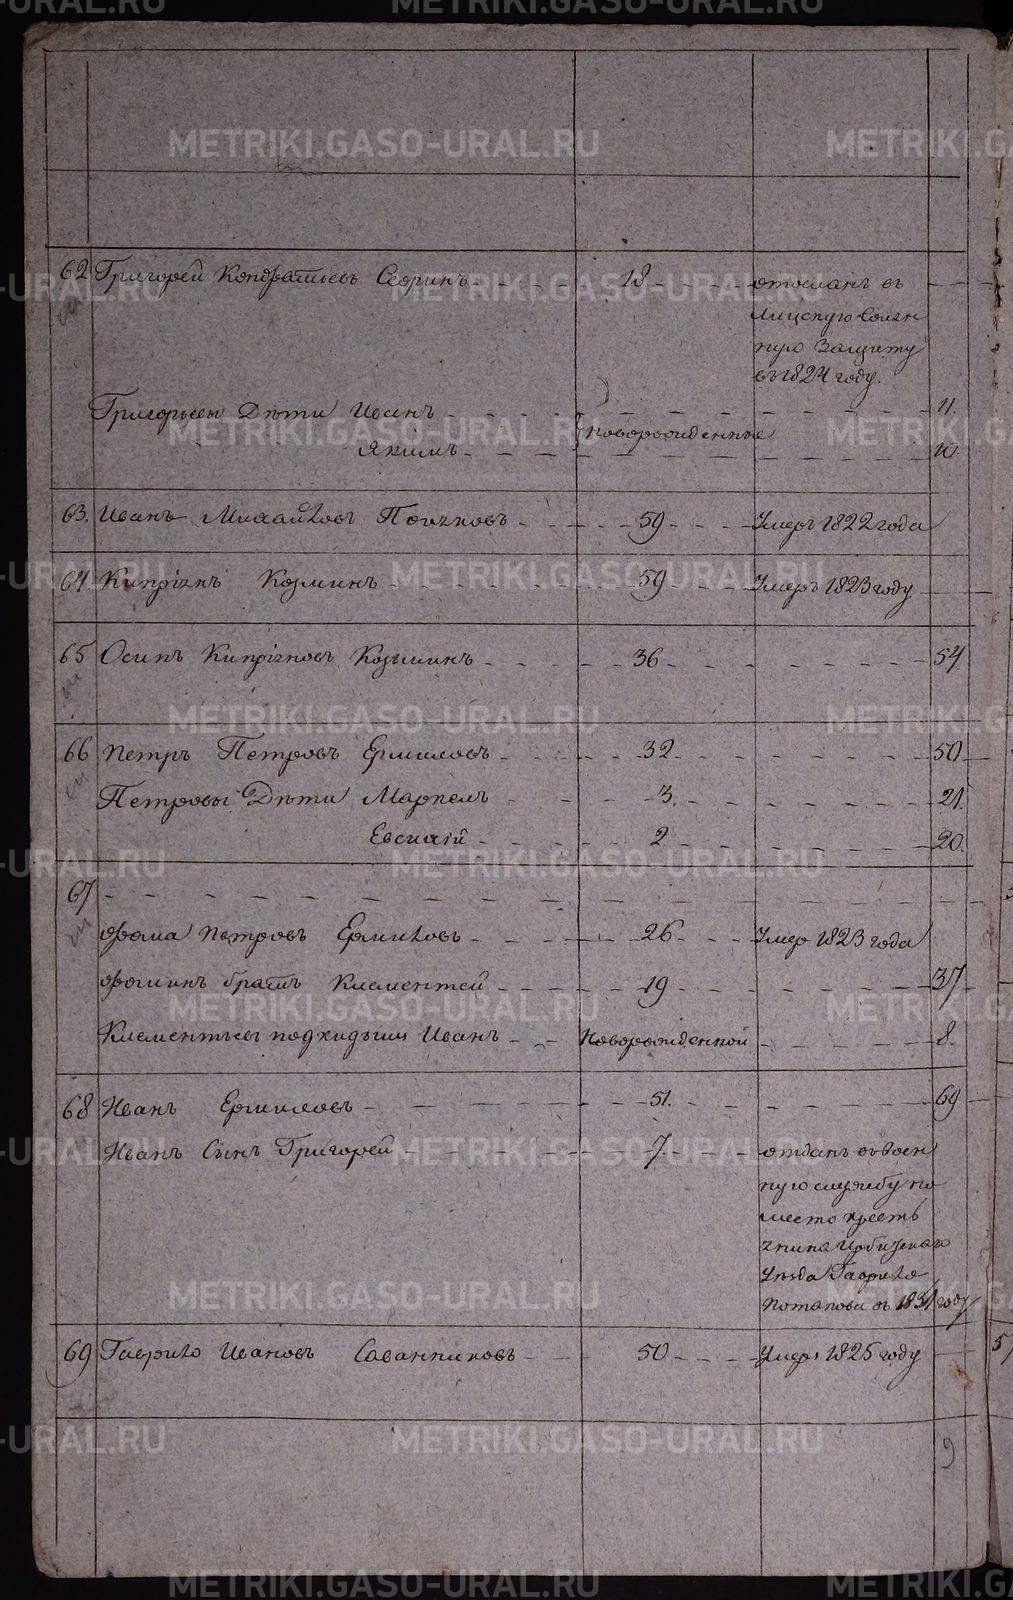 62 Григорей Кондратьевъ Севринъ 18 отосланъ въ
Илецкую Солен
ную Защиту
въ 1824 году.
Григорьевы Дѣти Иванъ 11.
новорожденные
Якимъ 10
63. Иванъ Михайловъ Поипковъ 59 Умеръ 1822 года
64 Кипріянъ Козминъ 59 Умеръ 1823 году
65 Осипъ Кипріяновъ Козьминъ 36 54
66 Петръ Петровъ Ермиловъ 32 50
Петровы Дѣти Маркелъ 3. 21.
Евсигній 2 20.
67
Фома Петровъ Ермиловъ 26 Умер 1823 года
Фоминъ братъ Клементей 19 37
Клементьевы подкидышъ Иванъ Новорожденной 8.
68 Иванъ Ермиловъ 51. 69
Иванъ Сынъ Григорей 7 отданъ въ воен
ную службу на
место кресть
янина Ирбитскаго
Уезда Гаврило
Потапова въ 1831 году
69 Гаврило Ивановъ Саванниковъ 50 Умеръ 1825 году
9
METRIKI.GASO-URAL.RU